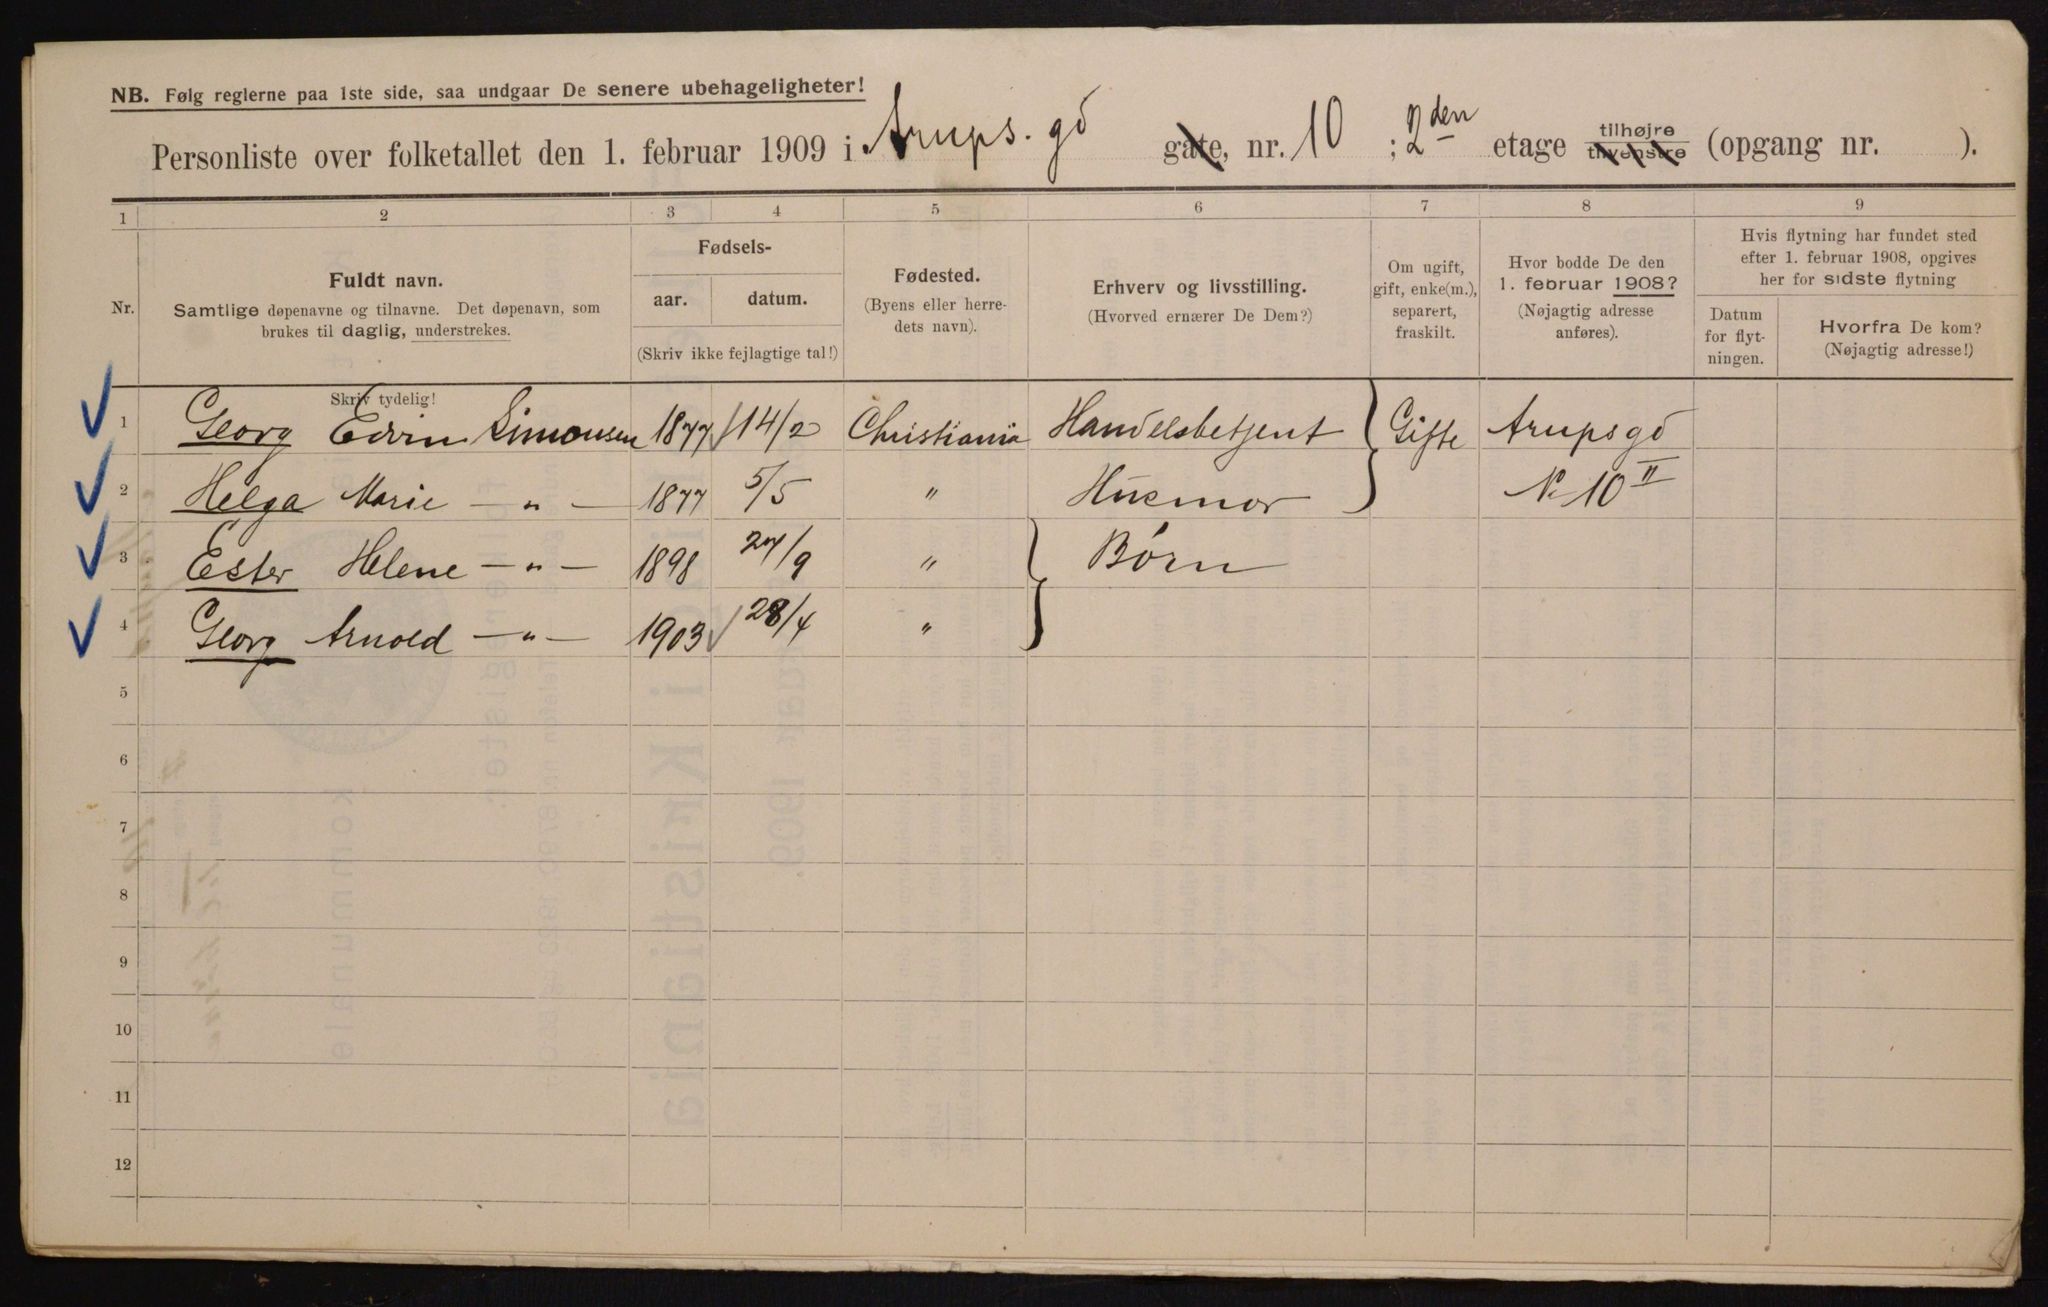 NB. Følg reglerne paa 1ste side, saa undgaar De senere ubehageligheter!
Personliste over folketallet den 1. februar 1909 i Arups. gd gate, nr. 10 ; 2den etage tilhøjre tilvenstre (opgang nr. ).
1 2 3 4 5 6 7 8 9
Nr.
Fuldt navn.
Samtlige døpenavne og tilnavne. Det døpenavn, som
brukes til daglig, understrekes.
Fødsels-
aar. datum.
(Skriv ikke fejlagtige tal!)
Fødested.
(Byens eller herre-
dets navn).
Erhverv og livsstilling.
(Hvorved ernærer De Dem?)
Om ugift,
gift, enke(m.),
separert,
fraskilt.
Hvor bodde De den
1. februar 1908?
(Nøjagtig adresse
anføres).
Hvis flytning har fundet sted
efter 1. februar 1908, opgives
her for sidste flytning
Datum
for flyt-
ningen.
Hvorfra De kom?
(Nøjagtig adresse!)
Skriv tydelig!
1 Georg Edvin Simonsen 1877 14/2 Christiania Handelsbetjent Gifte Arupsgd
2 Helga Marie — „ — 1877 5/5 „ Husmor No 10 II
3 Ester Helene — „ — 1898 27/9 „ Børn
4 Georg Arnold — „ — 1903 28/4 „
5
6
7
8
9
10
11
12